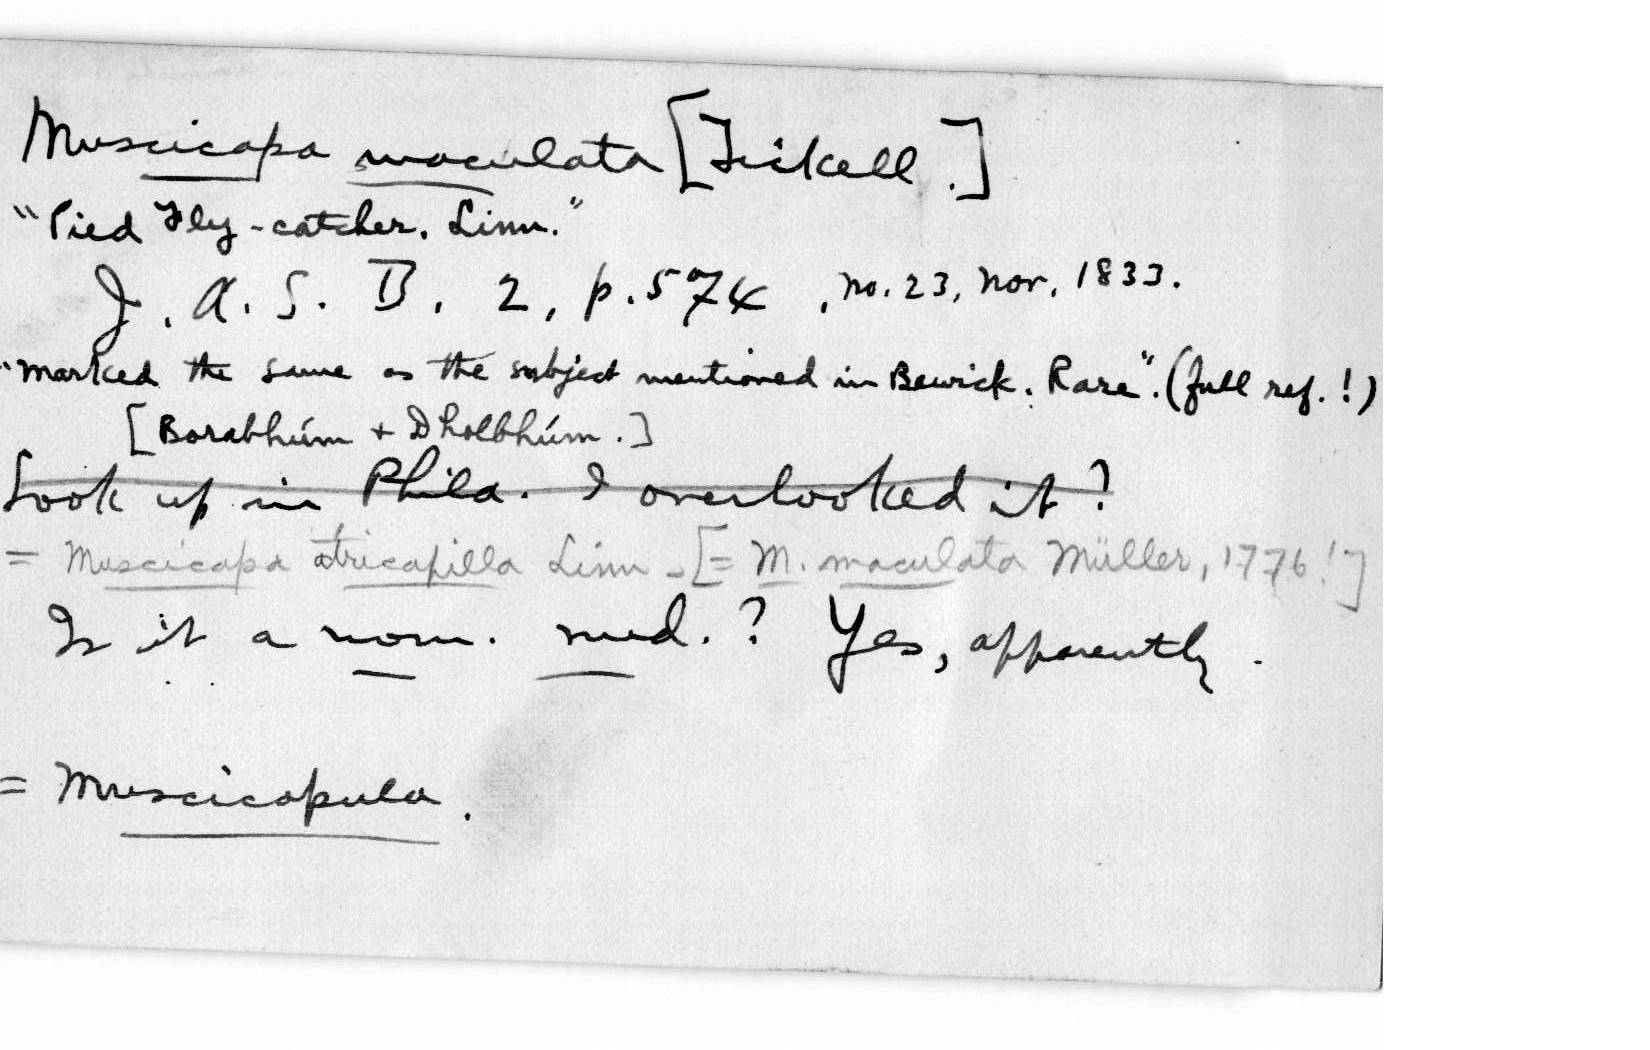 Muscicapa maculata [Tickell.]
"Pied Fly-catcher. Linn."
J. A. S. B. 2, p. 574, no. 23, Nov. 1833.
"marked the same as the subject mentioned in Bewick. Rare". (full ref.!)
[Borabhúm + Dholbhúm.]
Look up in Phila. I overlooked it?
= Muscicapa atricapilla Linn - [= M. maculata Müller, 1776!]
Is it a nom. nud.? Yes, apparently.
= Muscicapula.